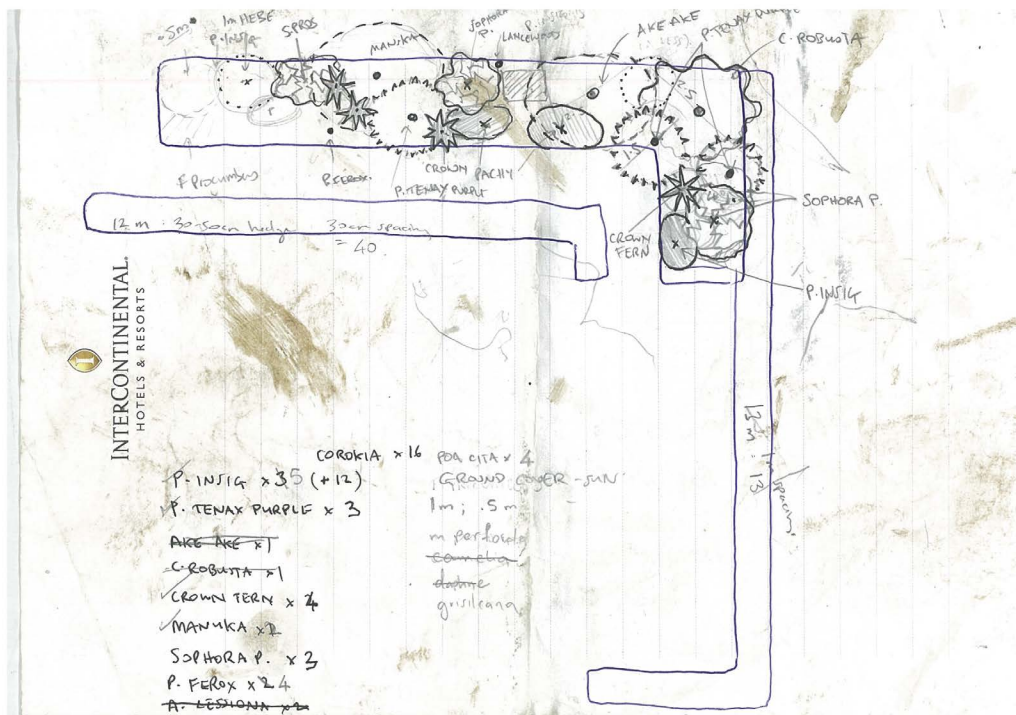 .5m
1m HEBE
P. INSIG
SPROS
MANUKA
SOPHORA
P.
P. INSIG
LANCEWOOD
AKE AKE
P. TENAX PURPLE
C. ROBUSTA
F Procumbens
P. FEROX.
CROWN
PACHY
P. TENAX PURPLE
CROWN
FERN
SOPHORA P.
P. INSIG
12 m : 30-50cm hedge 30cm spacing
= 40
INTERCONTINENTAL®
HOTELS & RESORTS
13
m : 1m spacing
13
COROKIA × 16
P. INSIG × 35 (+12)
P. TENAX PURPLE × 3
AKE AKE × 1
C. ROBUSTA × 1
CROWN FERN × 4
MANUKA × 2
SOPHORA P. × 3
P. FEROX × 2 4
POA CITA × 4
GROUND COVER - SUN
1m ; .5m
camelia
daphne